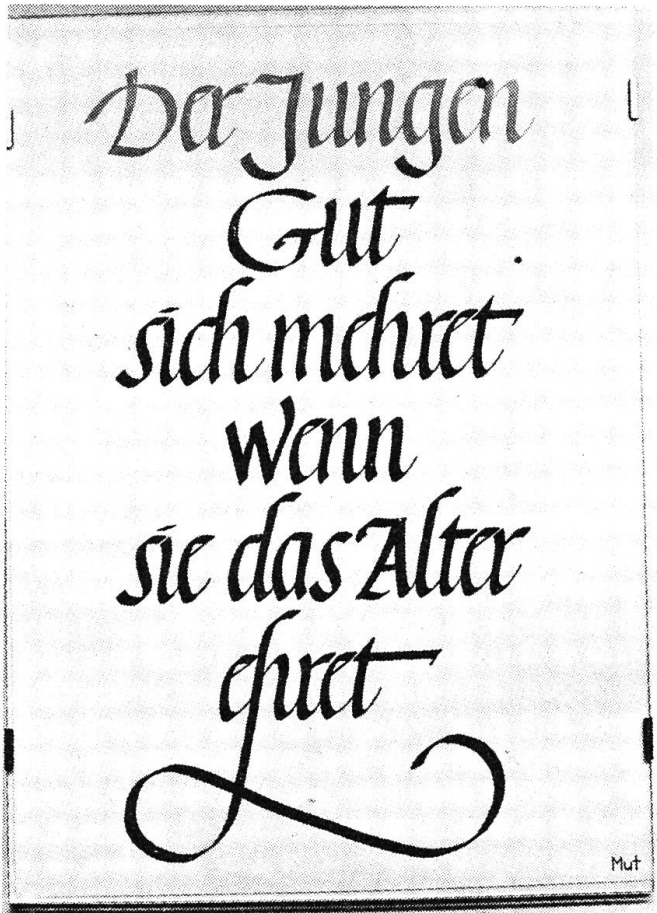 Der Jungen
Gut
sich mehret
wenn
sie das Alter
ehret
Mut